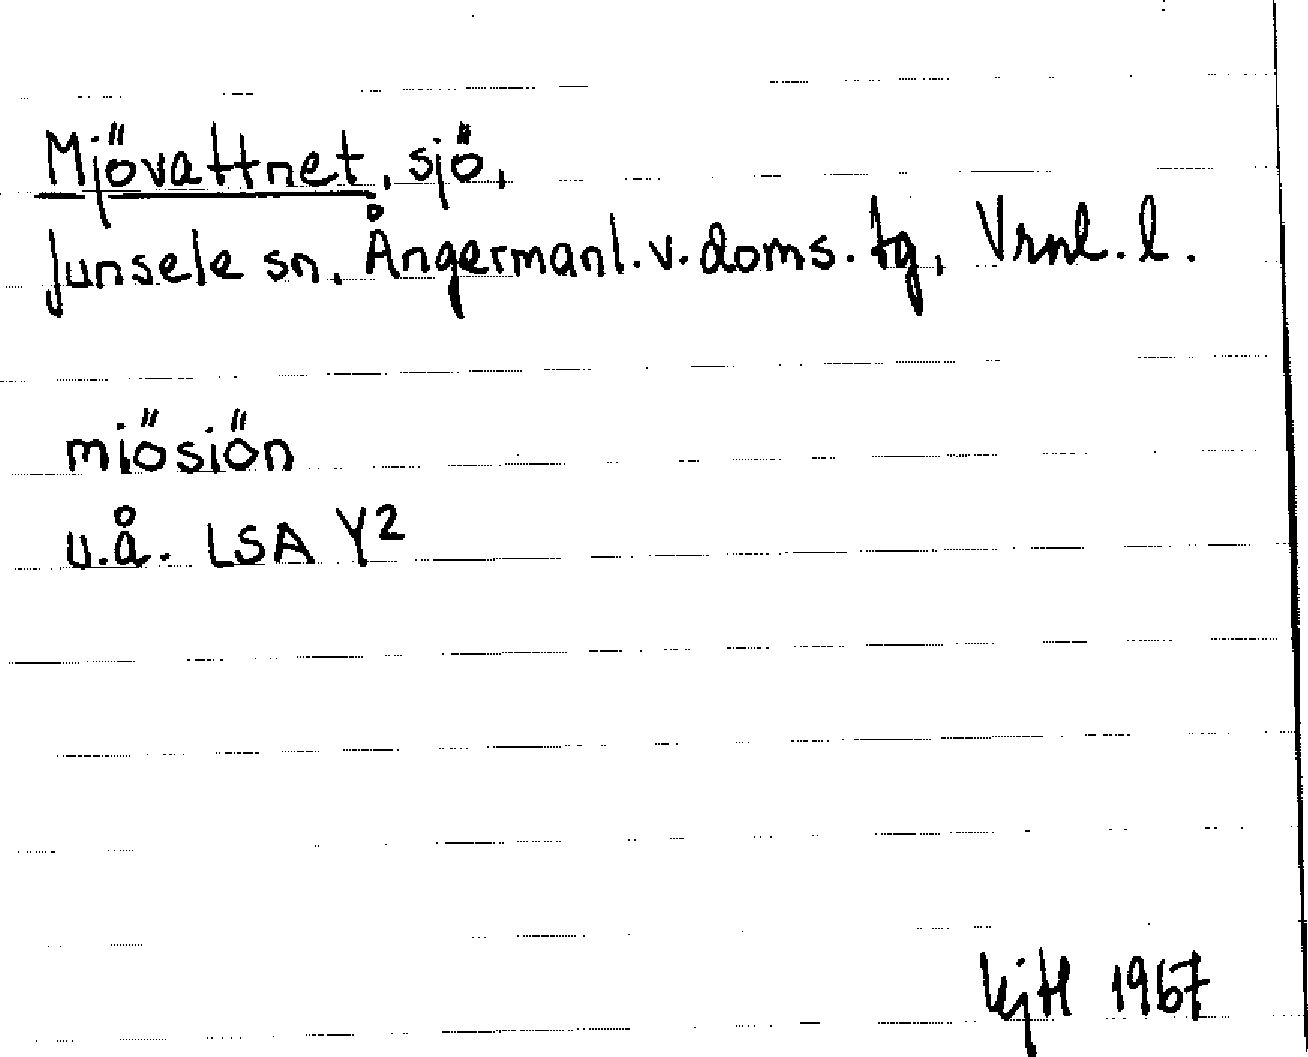 Mjövattnet, sjö,
Junsele sn. Ångermanl. v. doms. tg, Vrnl. l.
miösiön
u.å. LSA Y2
KjH 1967